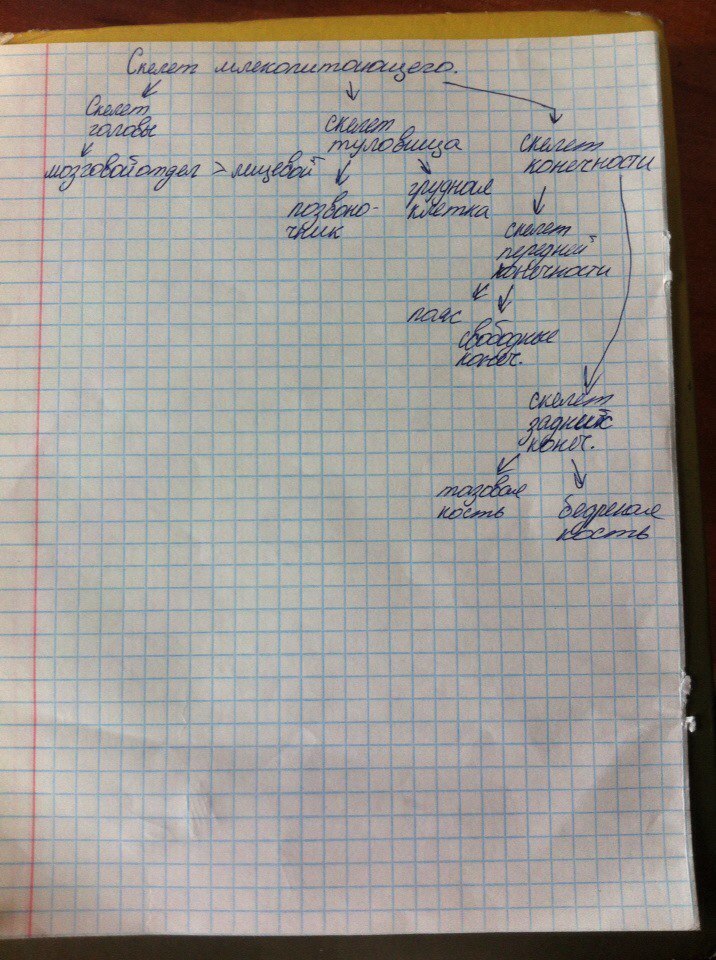 Скелет млекопитающего.
Скелет
головы
мозговой отдел > лицевой
скелет
туловища
позвоно-
чник
грудная
клетка
скелет
конечности
скелет
передней
конечности
пояс
свободные
конеч.
скелет
задних
конеч.
тазовая
кость
бедреная
кость